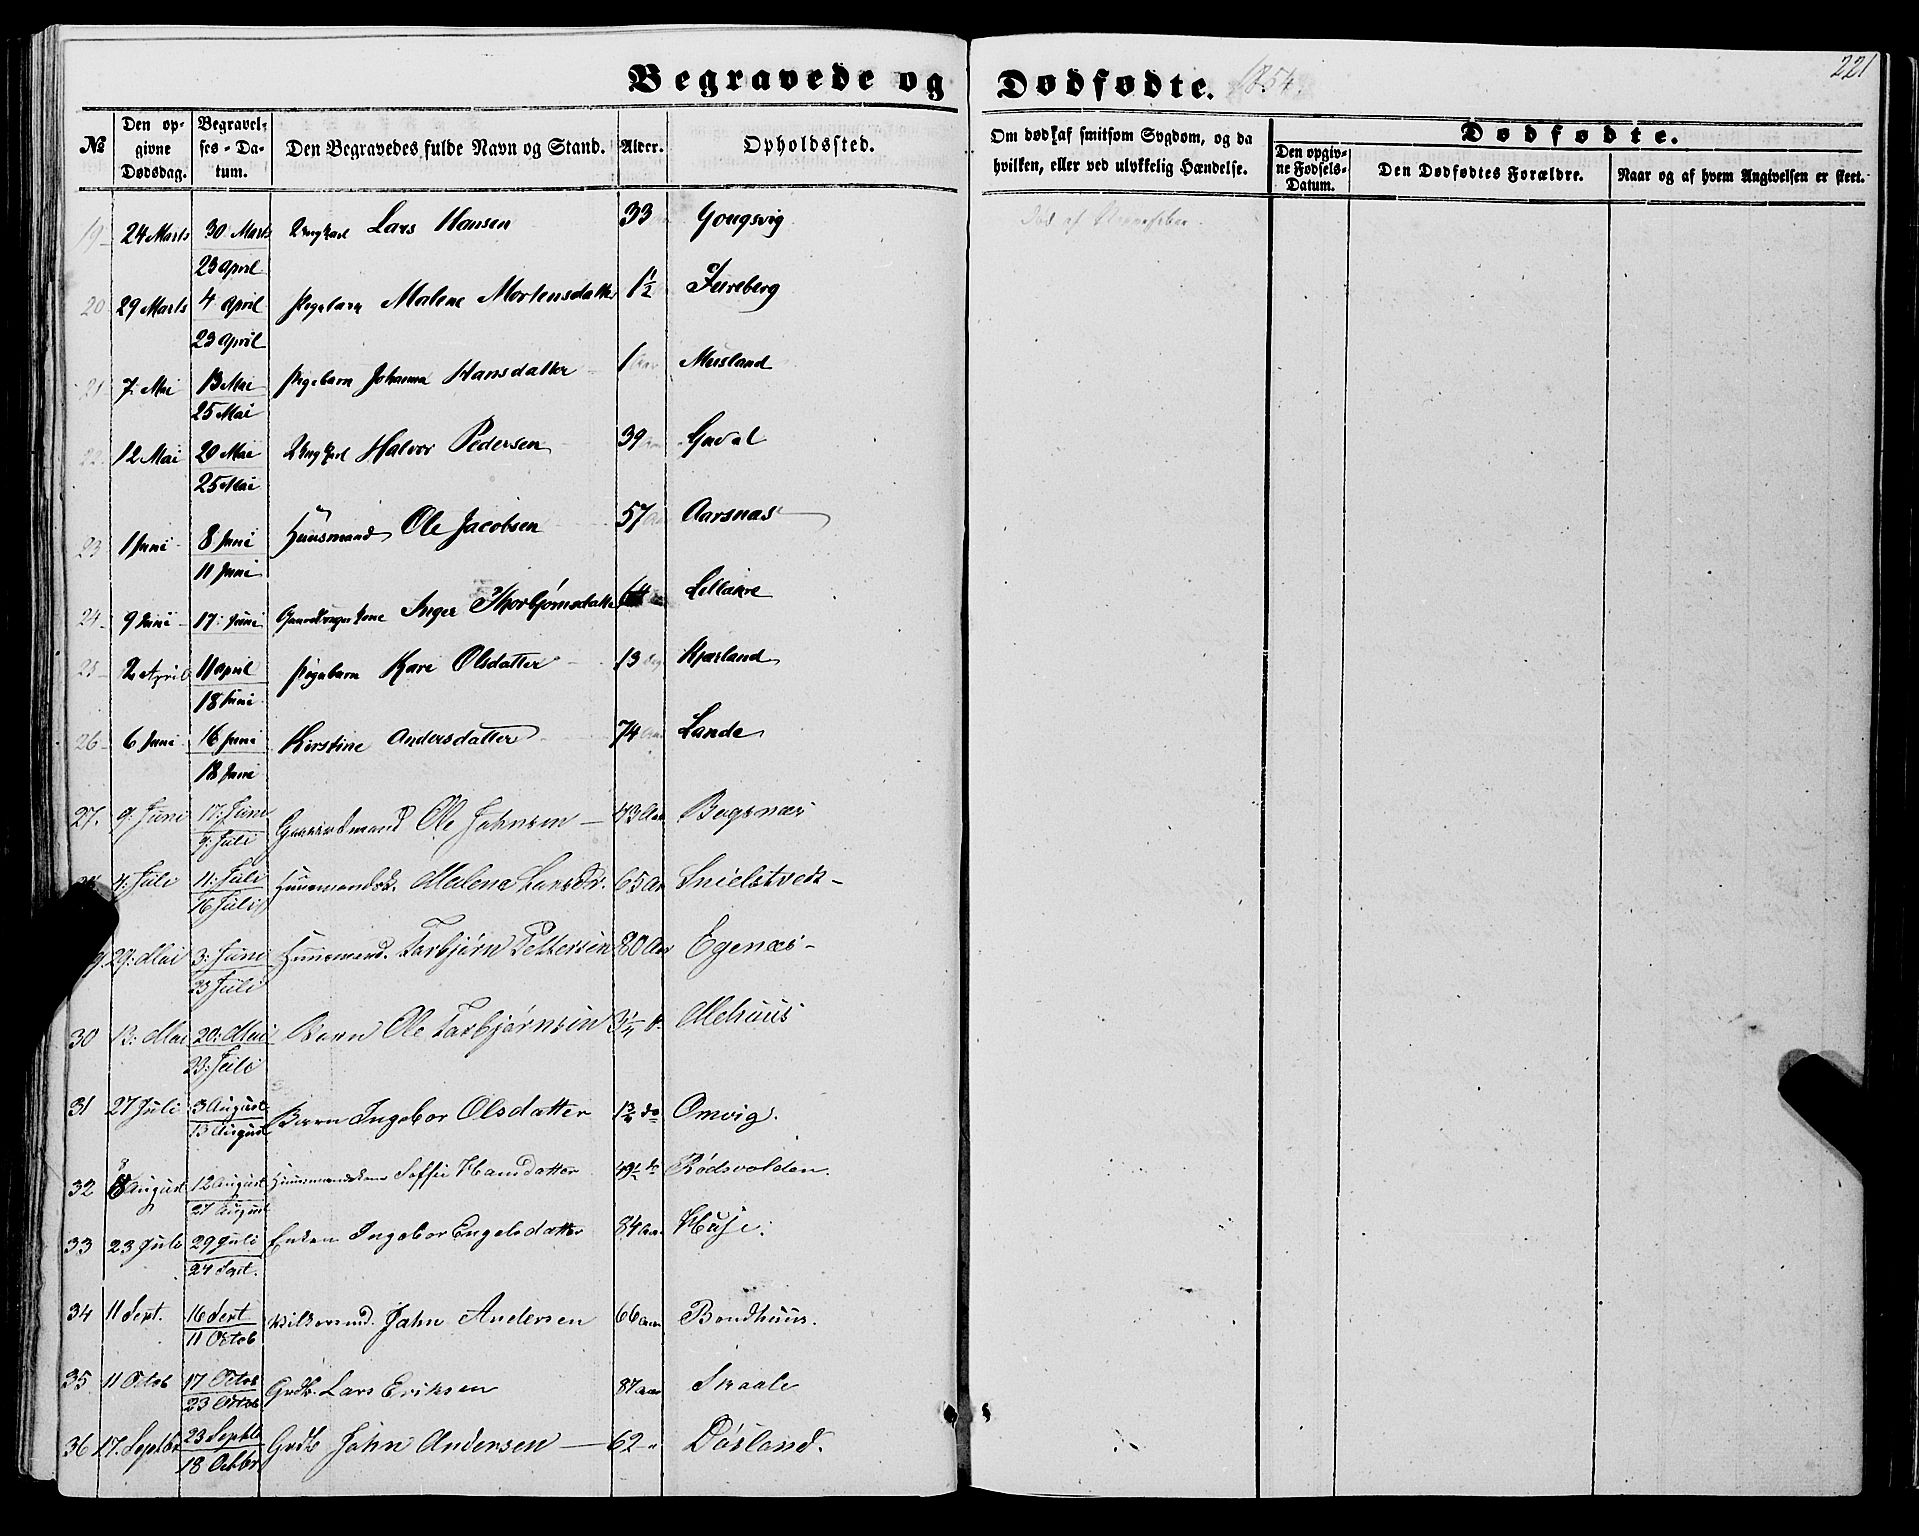 Begravede og Dødfødte. 1854. 221
№ Den opgivne Dødsdag. Begravelses-Datum. Den Begravedes fulde Navn og Stand. Alder. Opholdssted. Om død af smitsom Sygdom, og da hvilken, eller ved ulykkelig Hændelse. Dødfødte. Den opgivne Fødsels-Datum. Den Dødfødtes Forældre. Naar og af hvem Angivelsen er skeet.
19 24 Marts 30 Marts Ungkarl Lars Hansen 33 Gongsvig Død af
23 April
20 29 Marts 4 April Pigebarn Malene Mortensdatter 1½ Fureberg
23 April
21 7 Mai 13 Mai Pigebarn Johanna Hansdatter 1 Aar Musland
25 Mai
22 12 Mai 20 Mai Ungkarl Halvor Pedersen 39
25 Mai
23 1 Juni 8 Juni Huusmand Ole Jacobsen 57 Aarsnæs
11 Juni
24 9 Juni 17 Juni Inger Thorbjørnsdatter 64
25 2 April 11 April Pigebarn Kari Olsdatter 13 Kjærland
18 Juni
26 6 Juni 16 Juni Kirstine Andersdatter 74 Lande
18 Juni
27. 9: Juni 17: Juni Gaardmand Ole Johnsen 73 Aar Bogsnæs
9: Juli
4: Juli 11: Juli Huusmandsk. Malene Larsdtr. 65 Aar
16 Juli
29: Mai 3: Juni Huusmand. Torbjørn Pettersen 80 Aar Egenæs
23 Juli
30 13: Mai 20: Mai Barn Ole Torbjørnsen 3¼ Mehuus
23: Juli
31 27 Juli 3 August Barn Ingebor Olsdatter 1¾ do Omvig.
13 August
32 8 August 12 August Huusmandskone Soffie Hansdatter 49½ do Rødsvolden.
27 August
33 23 Juli 29 Juli Enken Ingebor Engelsdatter 84 aar Huse.
24 Sept.
34 11 Sept. 16 Sept John Andersen 66 aar Bondhuus.
11 Octob
35 11 Octob 17 Octob Grdb. Lars Eriksen 87 aar Skaale
23 Octob
36 17. Septbr 23 Septb Grdb John Andersen 62 " Døsland.
18 Octbr